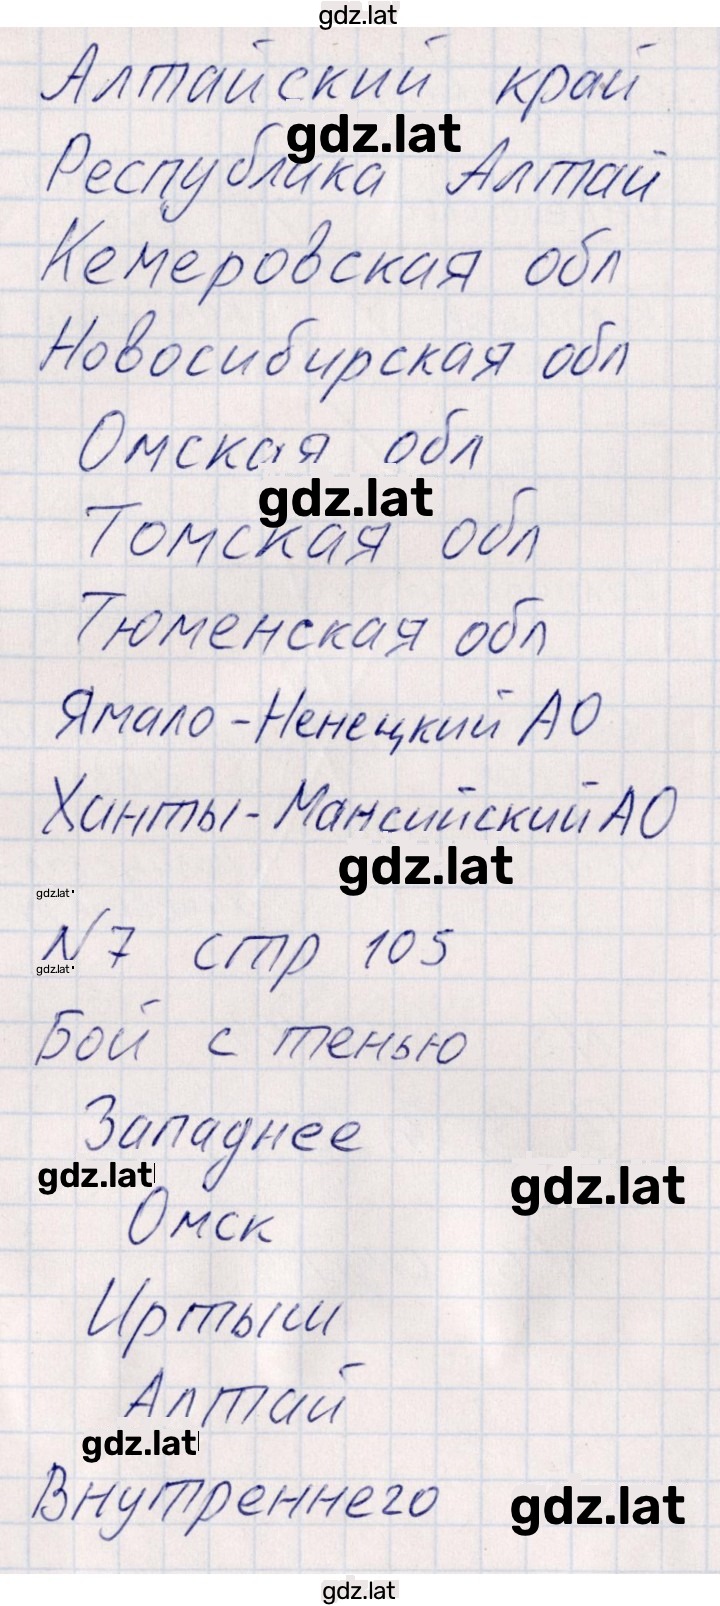 gdz.lat
Алтайский край
gdz.lat
Республика Алтай
Кемеровская обл
Новосибирская обл
Омская обл
gdz.lat
Томская обл
Тюменская обл
Ямало-Ненецкий АО
Ханты-Мансийский АО
gdz.lat
gdz.lat
N 7 стр 105
gdz.lat
Бой с тенью
Западнее
gdz.lat gdz.lat
Омск
Иртыш
Алтай
gdz.lat
Внутреннего gdz.lat
gdz.lat